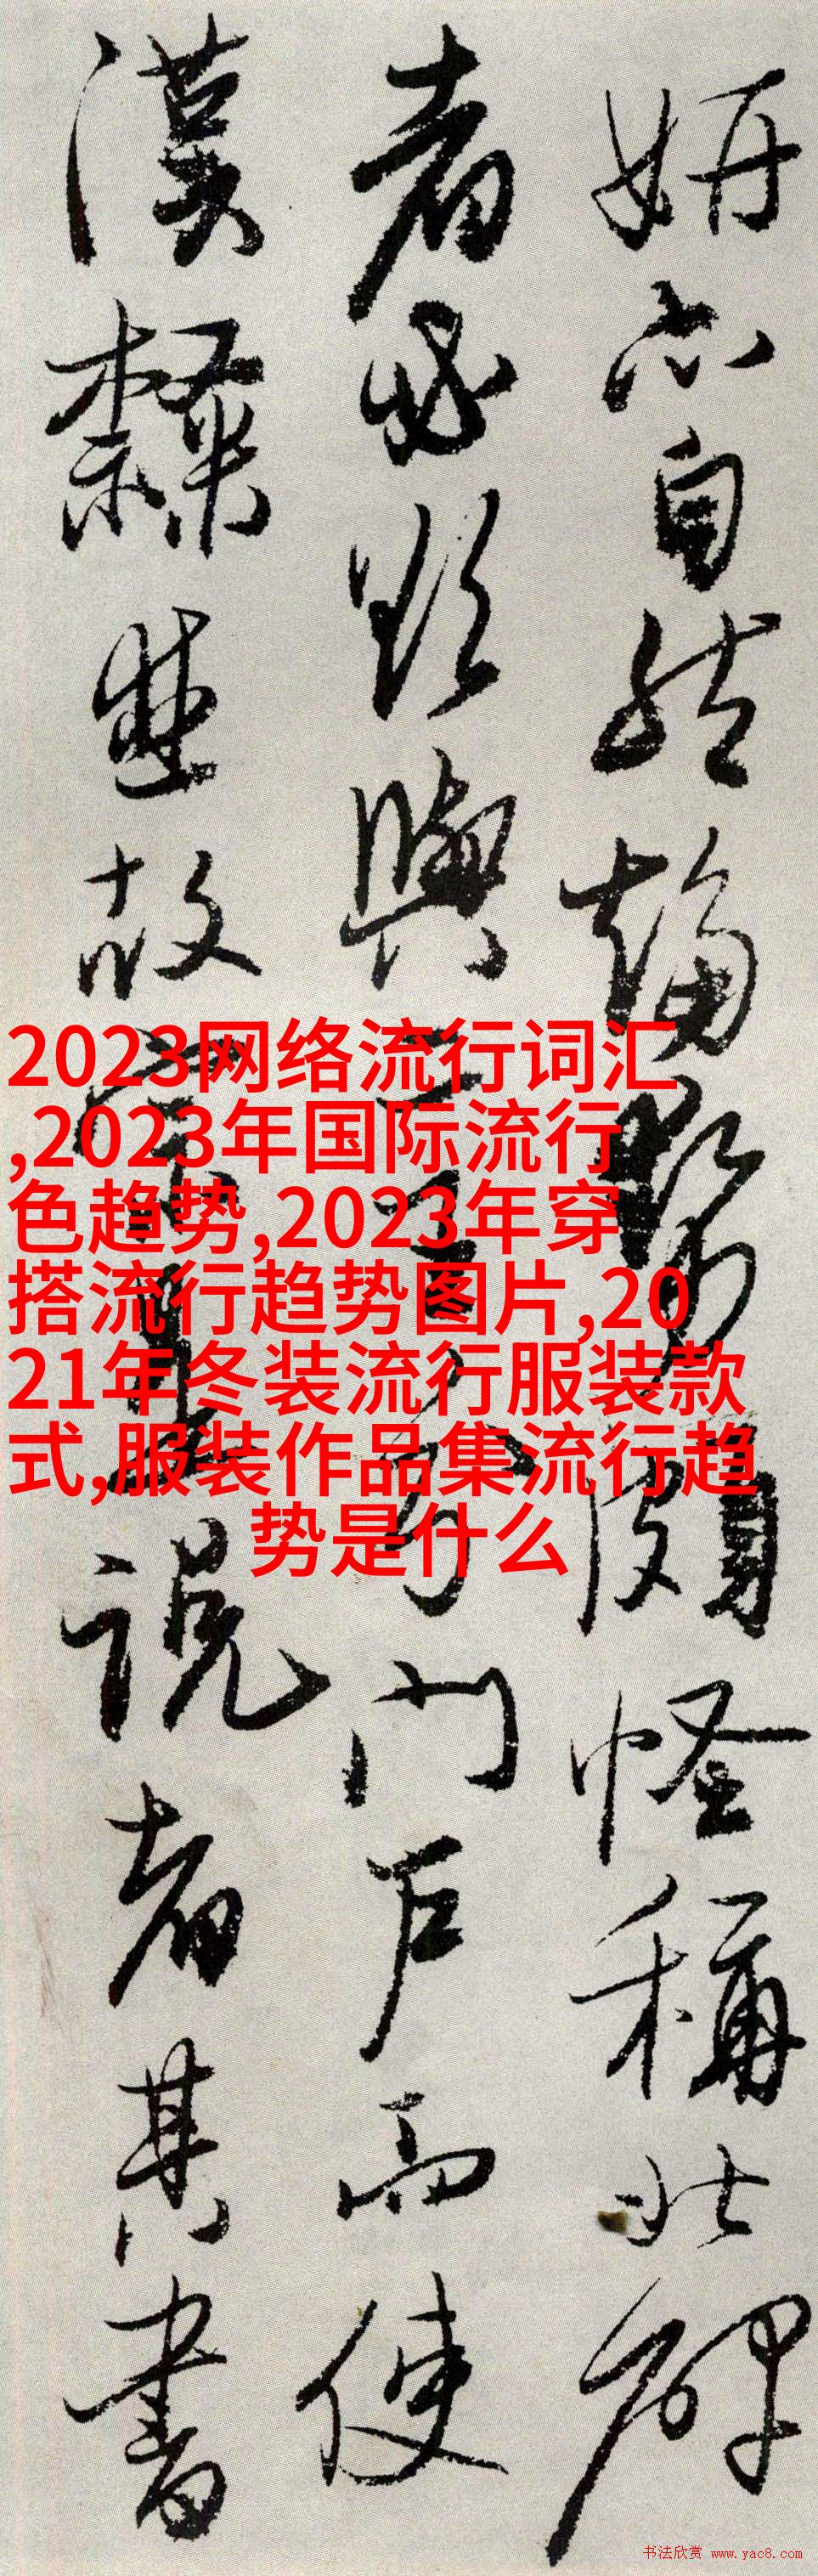 妍亦自然趨勢頗怪稱北碑
者必欲與二王門戶而使
漢隸無故說者其書
2023网络流行词汇
,2023年国际流行
色趋势,2023年穿
搭流行趋势图片,20
21年冬装流行服装款
式,服装作品集流行趋
势是什么
书法欣赏 www.yac8.com